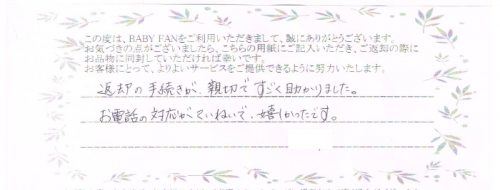 この度は、BABY FANをご利用いただきまして、誠にありがとうございます。
お気づきの点がございましたら、こちらの用紙にご記入いただき、ご返却の際に
お品物に同封していただければ幸いです。
お客様にとって、よりよいサービスをご提供できるように努力いたします。
返却の手続きが、親切ですごく助かりました。
お電話の対応がていねいで、嬉しかったです。